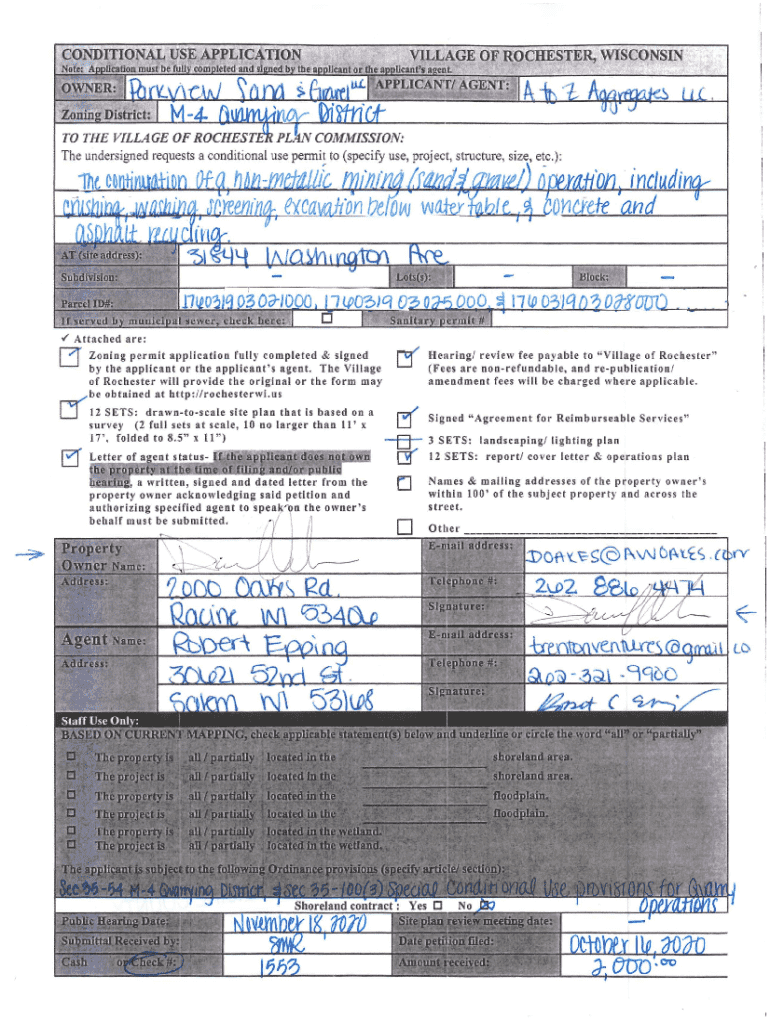 CONDITIONAL USE APPLICATION VILLAGE OF ROCHESTER, WISCONSIN
Note: Application must be fully completed and signed by the applicant or the applicant's agent.
OWNER: Parkview Sand & Gravel LLC APPLICANT/ AGENT: A to Z Aggregates LLC.
Zoning District: M-4 Quarrying District
TO THE VILLAGE OF ROCHESTER PLAN COMMISSION:
The undersigned requests a conditional use permit to (specify use, project, structure, size, etc.):
The continuation of a non-metallic mining (sand & gravel) operation, including
crushing, washing, screening, excavation below water table, & concrete and
asphalt recycling.
AT (site address): 31844 Washington Ave
Subdivision: – Lots(s): – Block: –
Parcel ID#: 176031903021000, 176031903025000, & 176031903028000
If served by municipal sewer, check here: Sanitary permit #
✓ Attached are:
Zoning permit application fully completed & signed
by the applicant or the applicant's agent. The Village
of Rochester will provide the original or the form may
be obtained at http://rochesterwi.us
12 SETS: drawn-to-scale site plan that is based on a
survey (2 full sets at scale, 10 no larger than 11' x
17', folded to 8.5" x 11")
Letter of agent status- If the applicant does not own
the property at the time of filing and/or public
hearing, a written, signed and dated letter from the
property owner acknowledging said petition and
authorizing specified agent to speak on the owner's
behalf must be submitted.
Hearing/ review fee payable to "Village of Rochester"
(Fees are non-refundable, and re-publication/
amendment fees will be charged where applicable.
Signed "Agreement for Reimburseable Services"
3 SETS: landscaping/ lighting plan
12 SETS: report/ cover letter & operations plan
Names & mailing addresses of the property owner's
within 100' of the subject property and across the
street.
Other
Property
Owner Name:
E-mail address: DOAKES@AWOAKES.com
Address: 2000 Oakes Rd.
Racine WI 53406
Telephone #: 262 886 4474
Signature:
Agent Name: Robert Epping
E-mail address: trentonventures@gmail.co
Address: 30621 52nd St.
Salem WI 53168
Telephone #: 262-321-9900
Signature:
Staff Use Only:
BASED ON CURRENT MAPPING, check applicable statement(s) below and underline or circle the word "all" or "partially"
The property is all / partially located in the shoreland area.
The project is all / partially located in the shoreland area.
The property is all / partially located in the floodplain.
The project is all / partially located in the floodplain.
The property is all / partially located in the wetland.
The project is all / partially located in the wetland.
The applicant is subject to the following Ordinance provisions (specify article/ section):
Sec 35-54 M-4 Quarrying District, & Sec 35-100(3) Special Conditional Use provisions for Quarry
Operations
Shoreland contract : Yes No
Public Hearing Date: November 18, 2020 Site plan review meeting date:
Submittal Received by: SMR Date petition filed: October 16, 2020
Cash or Check #: 1553 Amount received: 2,000.00